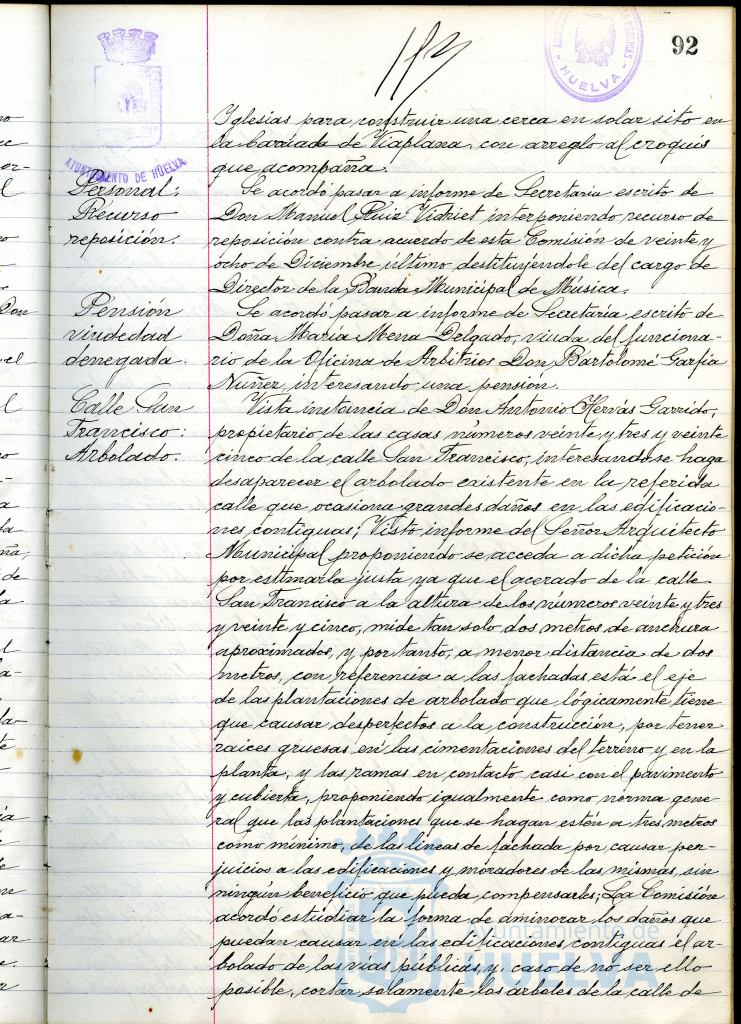 92
AYUNTAMIENTO DE HUELVA
HUELVA
Yglesias para construir una cerca en solar sito en
la barriada de Viaplana, con arreglo al croquis
que acompaña.
Personal:
Recurso
reposición.
Se acordó pasar a informe de Secretaria escrito de
Don Manuel Ruiz Vidriet interponiendo recurso de
reposición contra acuerdo de esta Comisión de veinte y
ocho de Diciembre último destituyéndole del cargo de
Director de la Banda Municipal de Música.
Pensión
viudedad
denegada.
Se acordó pasar a informe de Secretaria escrito de
Doña María Mena Delgado, viuda del funciona-
rio de la Oficina de Arbitrios Don Bartolomé Garfia
Nuñez, interesando una pensión.
Calle San
Francisco:
Arbolado.
Vista instancia de Don Antonio Hervás Garrido,
propietario de las casas números veinte y tres y veinte
cinco de la calle San Francisco, interesando se haga
desaparecer el arbolado existente en la referida
calle que ocasiona grandes daños en las edificacio-
nes contiguas; Visto informe del Señor Arquitecto
Municipal proponiendo se acceda a dicha petición
por estimarla justa ya que el acerado de la calle
San Francisco a la altura de los números veinte y tres
y veinte y cinco, mide tan solo dos metros de anchura
aproximados, y, por tanto, a menor distancia de dos
metros, con referencia a las fachadas está el eje
de las plantaciones de arbolado que lógicamente tiene
que causar desperfectos a la construcción, por tener
raices gruesas en las cimentaciones del terreno y en la
planta, y las ramas en contacto casi con el pavimento
y cubierta, proponiendo igualmente como norma gene-
ral que las plantaciones que se hagan estén a tres metros
como mínimo, de las lineas de fachada por causar per-
juicios a las edificaciones y moradores de las mismas, sin
ningún beneficio que pueda compensarles; La Comisión
acordó estudiar la forma de aminorar los daños que
puedan causar en las edificaciones contiguas el ar-
bolado de las vias públicas, y, caso de no ser ello
posible, cortar solamente los árboles de la calle de
Ayuntamiento de
HUELVA